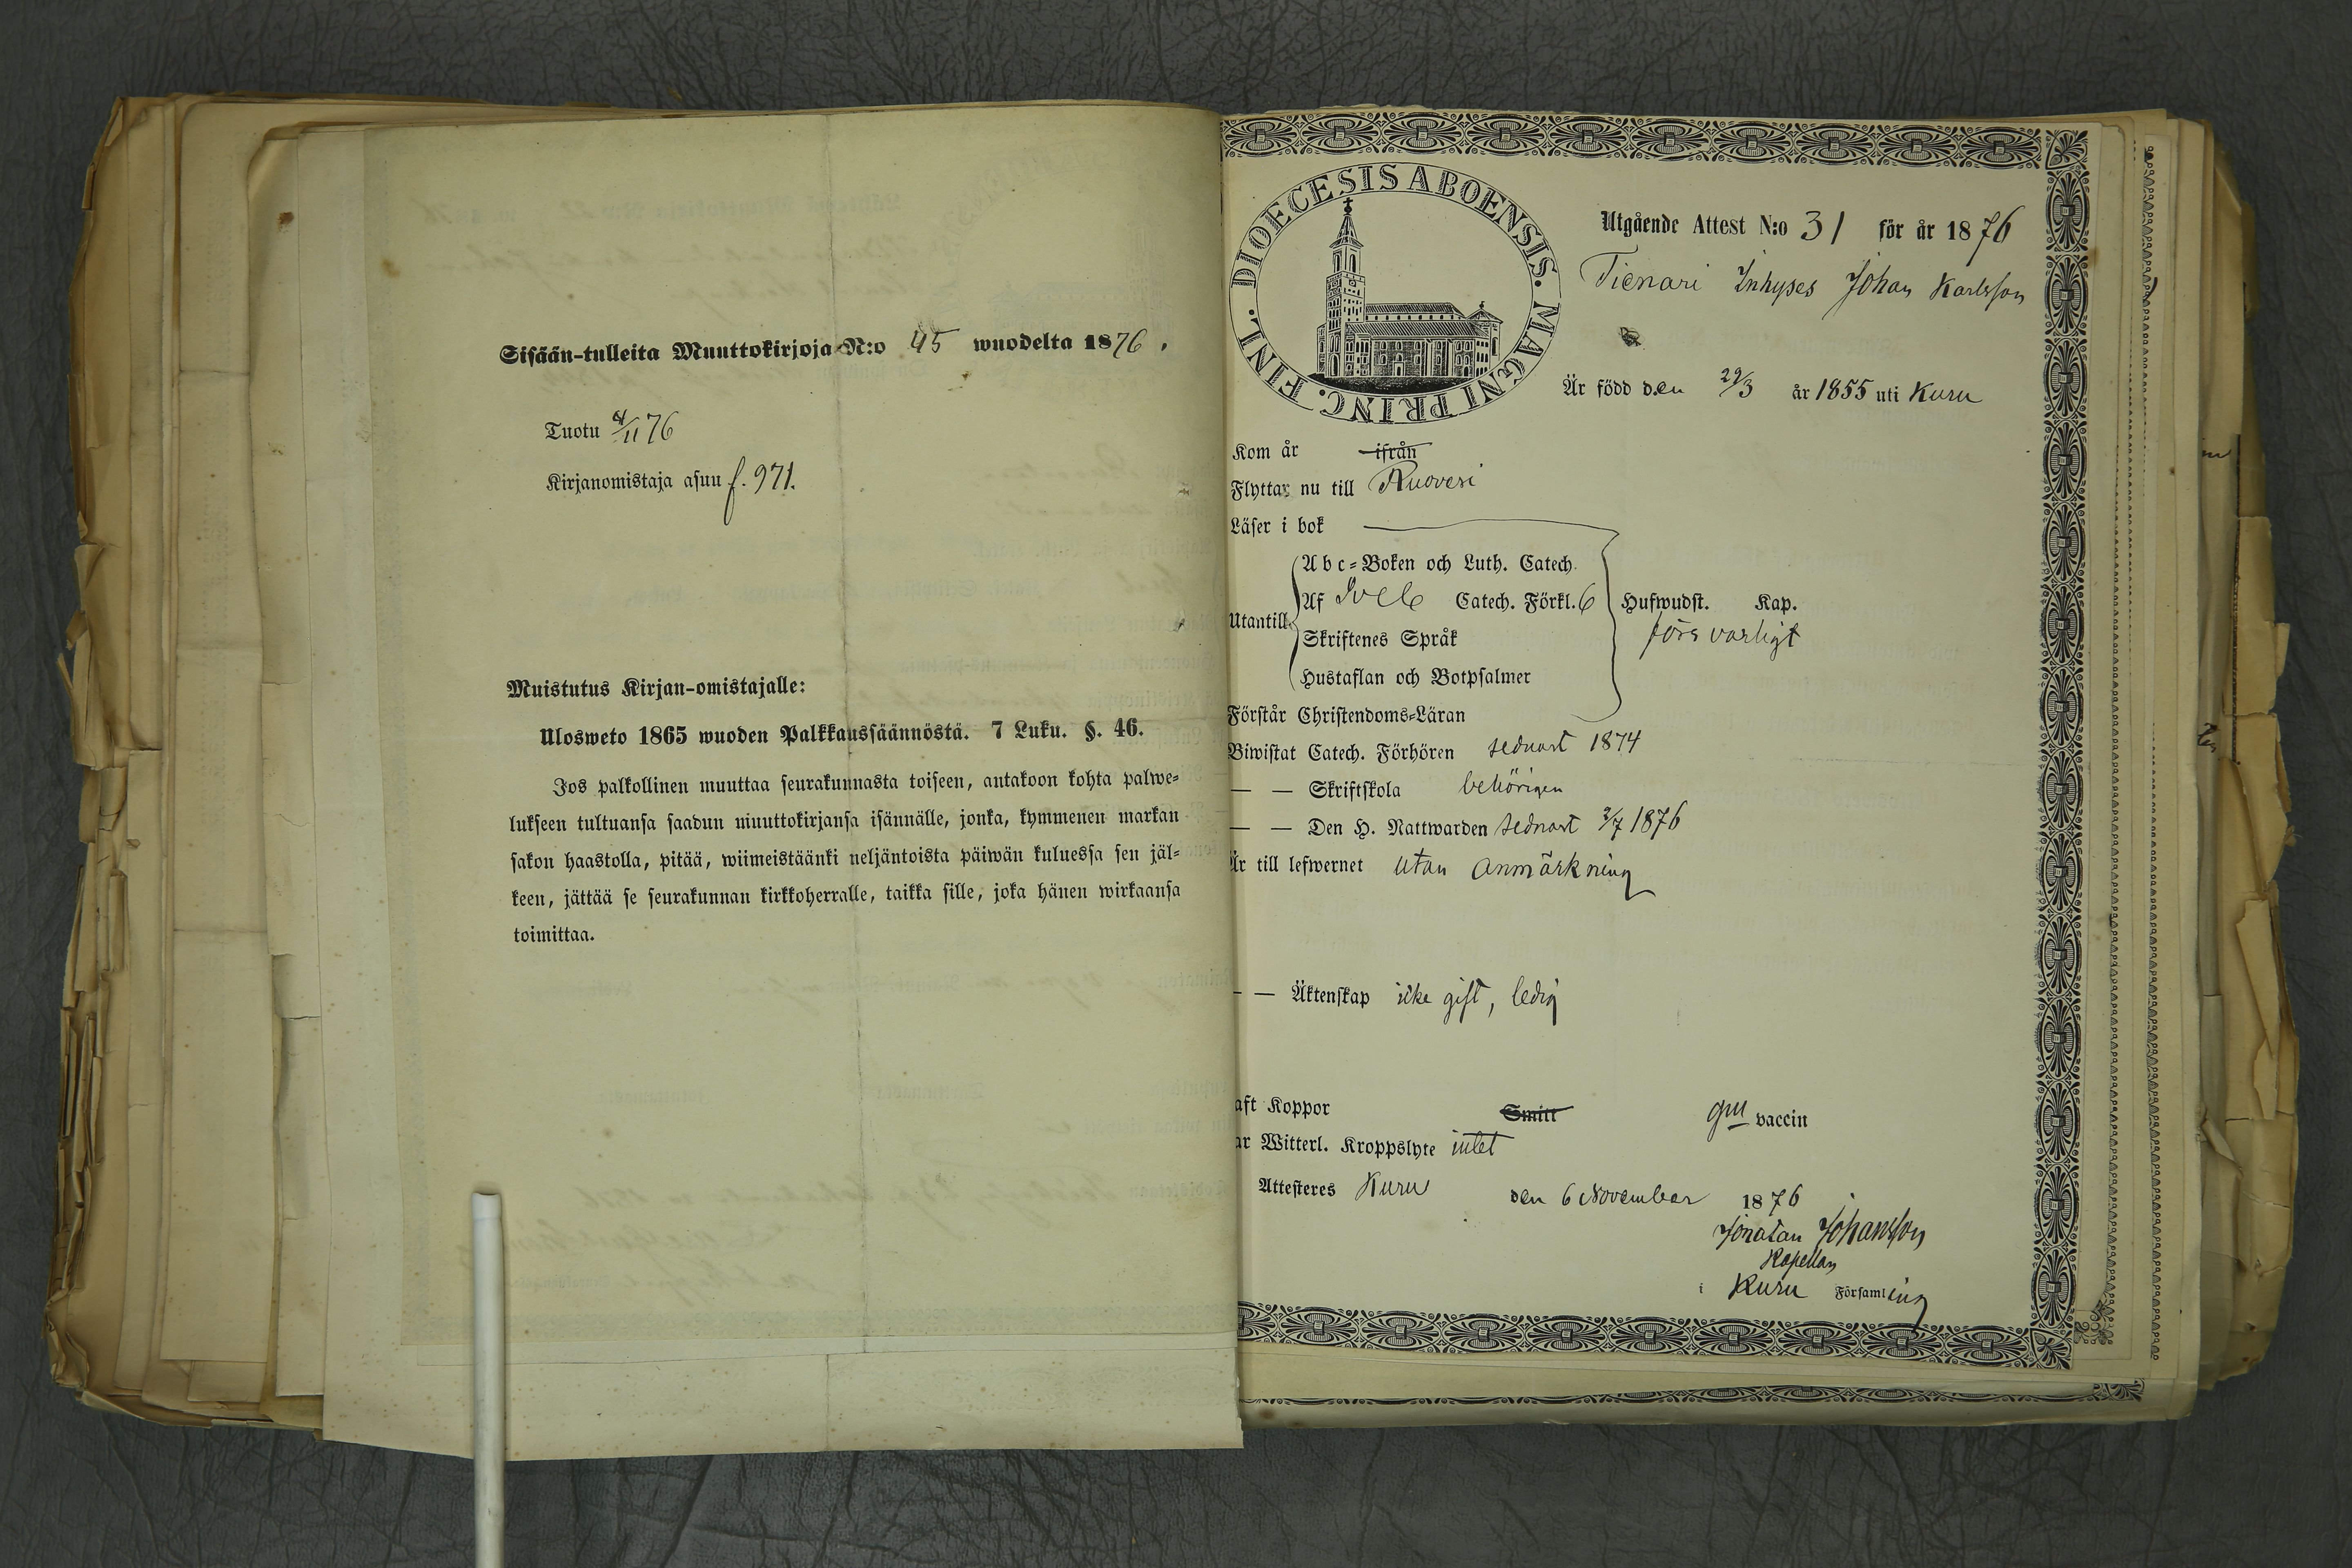 Sisään-tulleita Muuttokirjoja N:o 45 wuodelta 1876.
Tuotu 4/11 76
Kirjanomistaja asuu f. 971.
Muistutus Kirjan-omistajalle:
Ulosweto 1865 wuoden Palkkaussäännöstä. 7 Luku. §. 46.
Jos palkollinen muuttaa seurakunnasta toiseen, antakoon kohta palwe-
lukseen tultuansa saadun muuttokirjansa isännälle, jonka, kymmenen markan
sakon haastolla, pitää, wiimeistäänki neljäntoista päiwän kuluessa sen jäl-
keen, jättää se seurakunnan kirkkoherralle, taikka sille, joka hänen wirkaansa
toimittaa.
DIOECESIS ABOENSIS. MAGNI PRINC. FINL.
Utgående Attest N:o 31 för år 1876
Tienari Inhyses Johan Karlsson
Är född den 29/3 år 1855 uti Kuru
Kom år ifrån
Flyttar nu till Ruovesi
Läser i bok
Utantill
Abc-Boken och Luth. Catech.
Af Catech. Förkl. 6 Hufwudst. Kap.
Skriftenes Språk försvarligt
Hustaflan och Botpsalmer
Förstår Christendoms-Läran
Biwistat Catech. Förhören sednast 1874
— — Skriftskola behörigen
— — Den H. Nattwarden sednast 2/7 1876
Är till lefwernet utan anmärkning
— — Äktenskap icke gift, ledig
aft Koppor Smitt gm vaccin
ar Witterl. Kroppslyte intet
Attesteres Kuru den 6 November 1876
Jonatan Johansson
Kapellan
i Kuru Församling